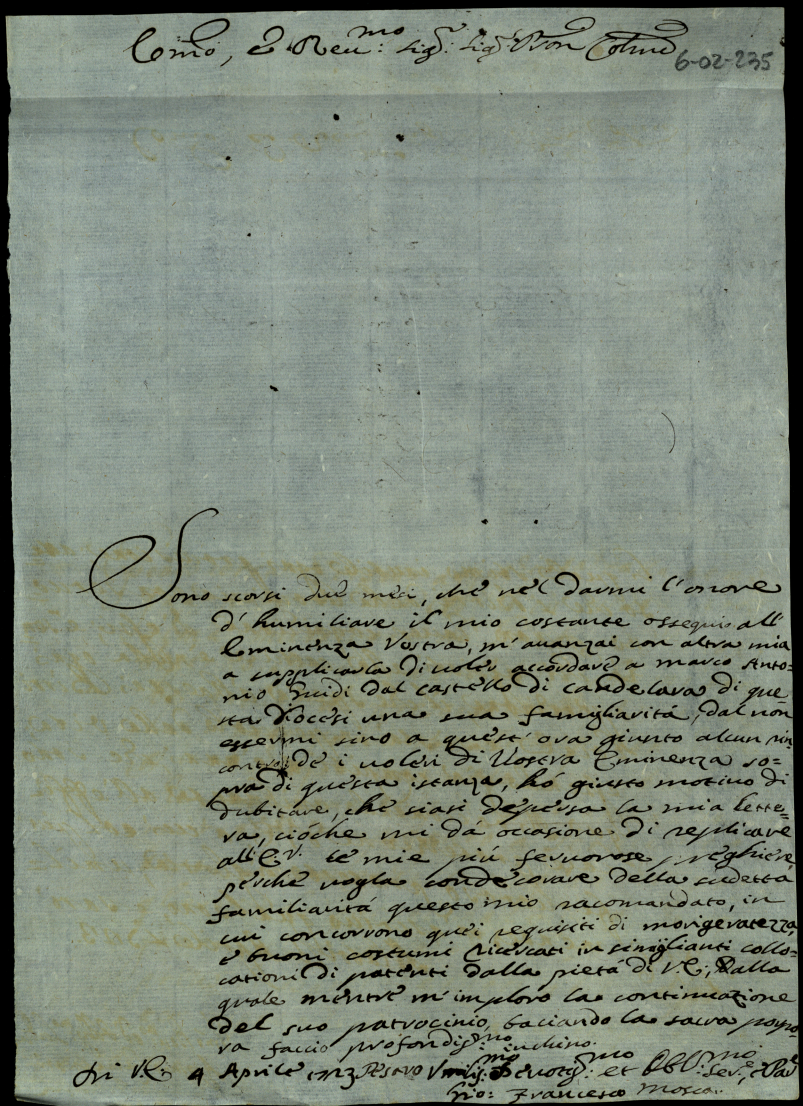 Emo, e Reu:mo Sig.r Sig.r Pron Colmo
6-02-235
Sono scorsi due mesi, che nel darmi l'onore
d'humiliare il mio costante ossequio all'
Eminenza Vostra, m'auanzai con altra mia
a supplicarla di uoler accordare a Marco Anto=
nio Guidi dal Castello di Candelara di que=
sta Diocesi una sua famigliaritá, dal non
essermi sino a quest'ora giunto alcun rin=
contro de i uoleri di Vostra Eminenza so=
pra di questa istanza, hó giusto motiuo di
dubitare, che siasi dispersa la mia lette=
ra, cióche mi da occasione di replicare
all'E.V. le mie piú feruorose preghiere,
perche uoglia condecorare della sudetta
familiaritá questo mio racomandato, in
cui concorrono quei requisiti di morigeratezza,
e buoni costumi ricercati in simiglianti collo=
cationi di patenti dalla pietá di V.E., dalla
quale mentre m'imploro la continuazione
del suo patrocinio, baciando la sacra porpo=
ra faccio profondis:mo inchino.
Di V.E. 4 Aprile 1713 Pesaro Vmilis:mo Deuotis:mo et Obl:mo Ser.e
Gio: Francesco Mosca